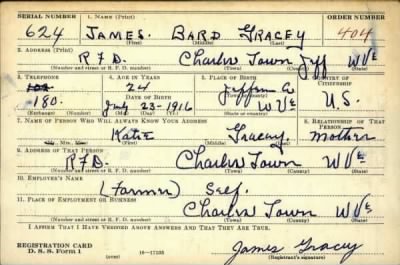 SERIAL NUMBER 1. NAME (Print) ORDER NUMBER
624 JAMES. BARD GRACEY 404
(First) (Middle) (Last)
2. ADDRESS (Print)
RFD. Charles Town Jeff WVa
(Number and street or R. F. D. number) (Town) (County) (State)
3. TELEPHONE 4. AGE IN YEARS 5. PLACE OF BIRTH 6. COUNTRY OF CITIZENSHIP
24 Jefferson Co
DATE OF BIRTH (Town or county)
180. July 23-1916 WVa U.S.
(Exchange) (Number) (Mo.) (Day) (Yr.) (State or country)
7. NAME OF PERSON WHO WILL ALWAYS KNOW YOUR ADDRESS 8. RELATIONSHIP OF THAT PERSON
Katie Gracey. Mother
(Mr., Mrs., Miss) (First) (Middle) (Last)
9. ADDRESS OF THAT PERSON
RFD. Charles Town WVa
(Number and street or R. F. D. number) (Town) (County) (State)
10. EMPLOYER'S NAME
(Farmer) Self.
11. PLACE OF EMPLOYMENT OR BUSINESS
Charles Town WVa
(Number and street or R. F. D. number) (Town) (County) (State)
I AFFIRM THAT I HAVE VERIFIED ABOVE ANSWERS AND THAT THEY ARE TRUE.
REGISTRATION CARD
D. S. S. Form 1 16-17105 James Gracey
(over) (Registrant's signature)